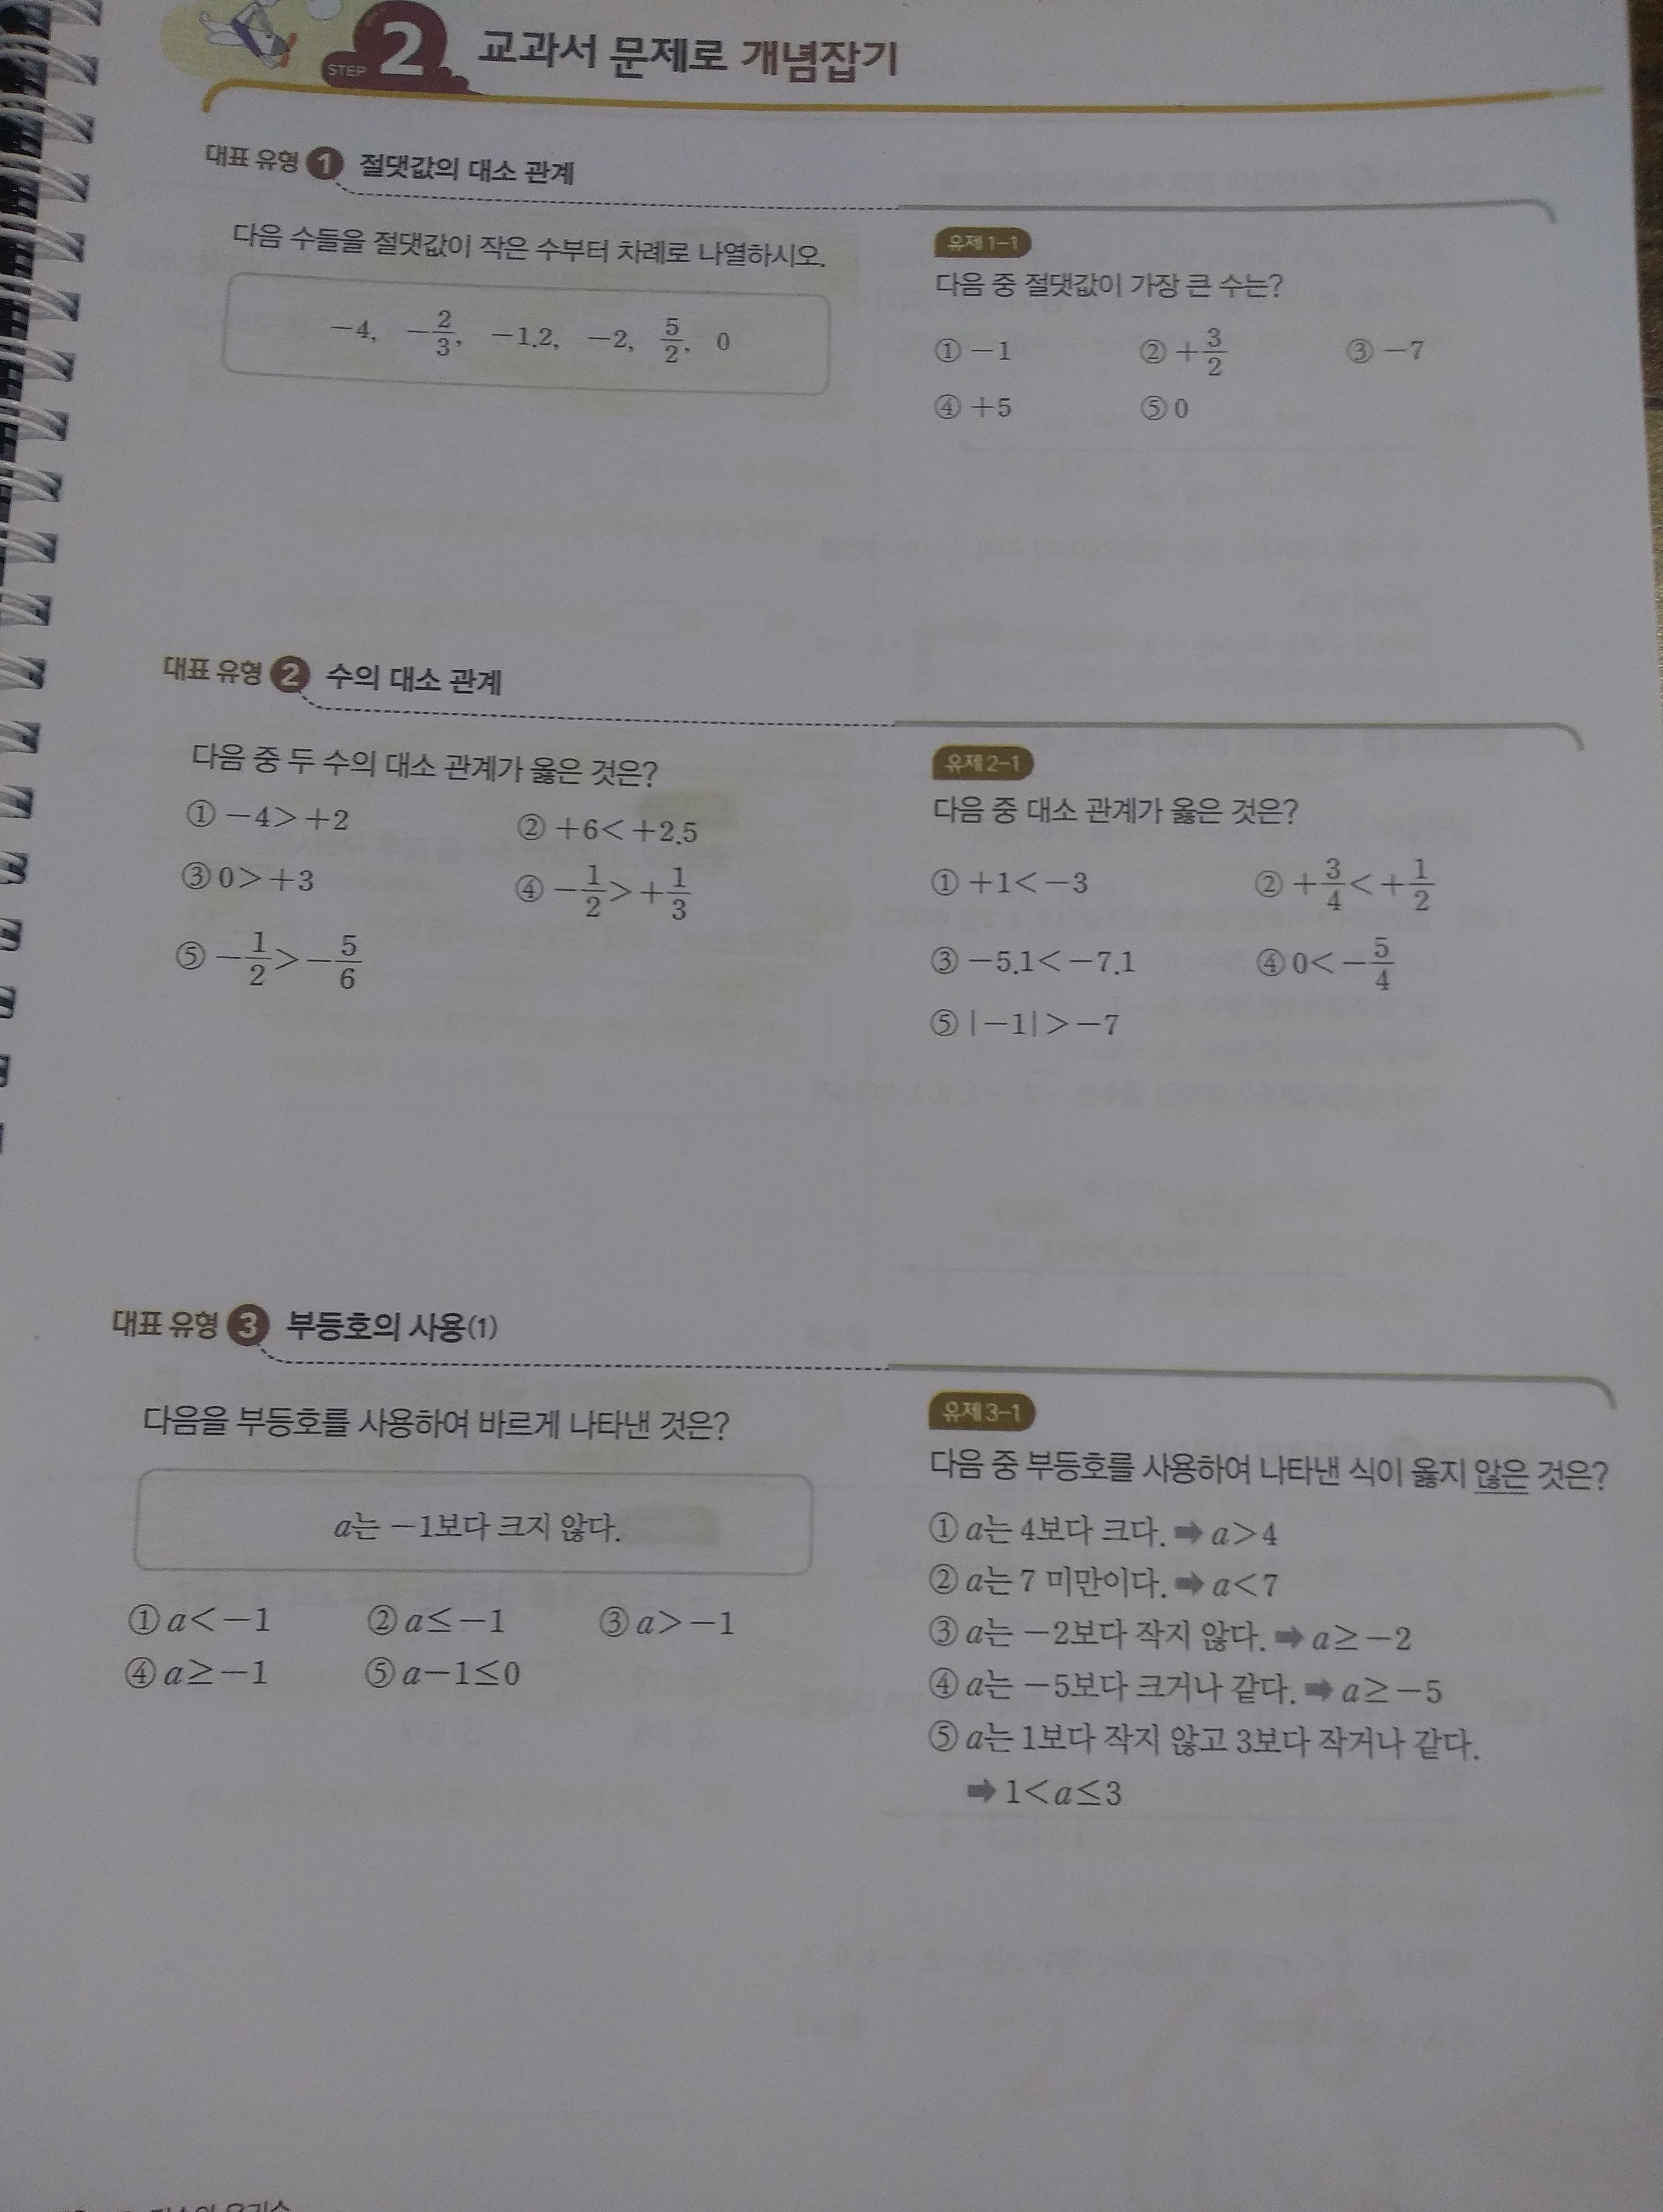 STEP 2 교과서 문제로 개념잡기
대표 유형 1 절댓값의 대소 관계
다음 수들을 절댓값이 작은 수부터 차례로 나열하시오.
-4, -2/3, -1.2, -2, 5/2, 0
유제 1-1
다음 중 절댓값이 가장 큰 수는?
① -1 ② +3/2 ③ -7
④ +5 ⑤ 0
대표 유형 2 수의 대소 관계
다음 중 두 수의 대소 관계가 옳은 것은?
① -4> +2 ② +6< +2.5
③ 0> +3 ④ -1/2> +1/3
⑤ -1/2> -5/6
유제 2-1
다음 중 대소 관계가 옳은 것은?
① +1< -3 ② +3/4< +1/2
③ -5.1< -7.1 ④ 0< -5/4
⑤ |-1|> -7
대표 유형 3 부등호의 사용(1)
다음을 부등호를 사용하여 바르게 나타낸 것은?
a는 -1보다 크지 않다.
① a< -1 ② a≤ -1 ③ a> -1
④ a≥ -1 ⑤ a-1≤0
유제 3-1
다음 중 부등호를 사용하여 나타낸 식이 옳지 않은 것은?
① a는 4보다 크다. ➡ a>4
② a는 7 미만이다. ➡ a<7
③ a는 -2보다 작지 않다. ➡ a≥ -2
④ a는 -5보다 크거나 같다. ➡ a≥ -5
⑤ a는 1보다 작지 않고 3보다 작거나 같다.
➡ 1<a≤3